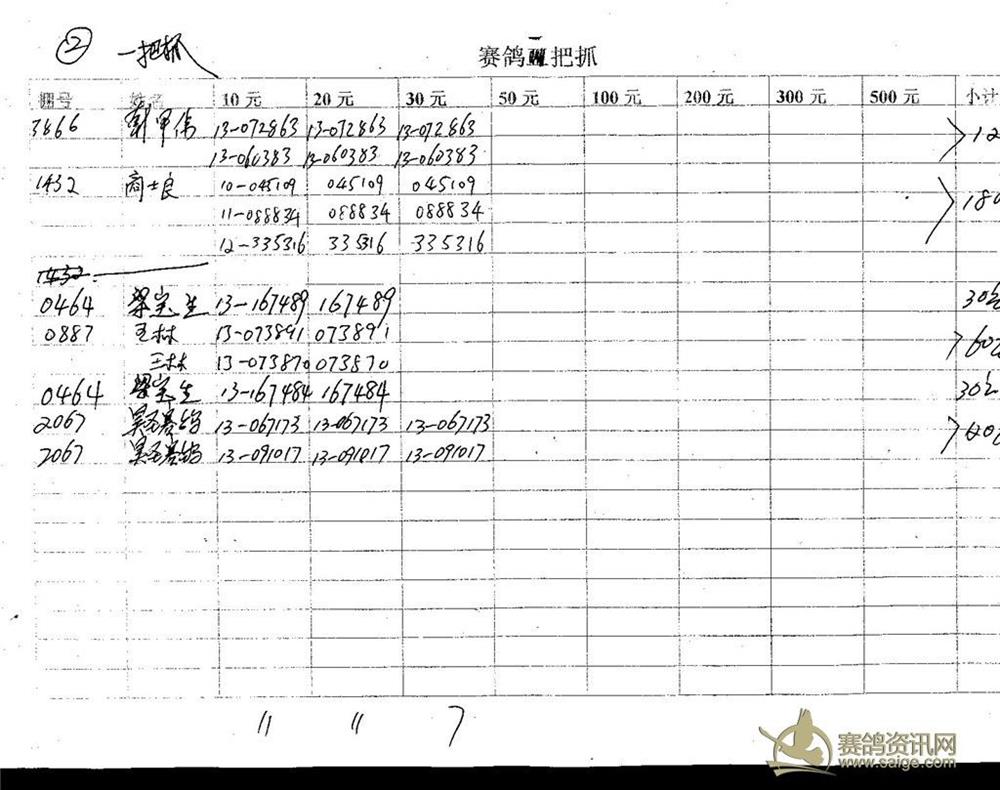 ② 一把抓
赛鸽 一把抓
棚号 姓名 10元 20元 30元 50元 100元 200元 300元 500元 小计
3866 13-072863 13-072863 13-072863
13-060383 13-060383 13-060383 12
1432 商士良 10-045109 045109 045109
11-088834 088834 088834 180
12-335316 335316 335316
1432
0464 梁宝生 13-167489 167489 30
0887 王林 13-073891 073891 60
王林 13-073870 073870
0464 梁宝生 13-167484 167484 30
2067 13-067173 13-067173 13-067173
2067 13-091017 13-091017 13-091017
11 11 7
赛鸽资讯网
www.saige.com